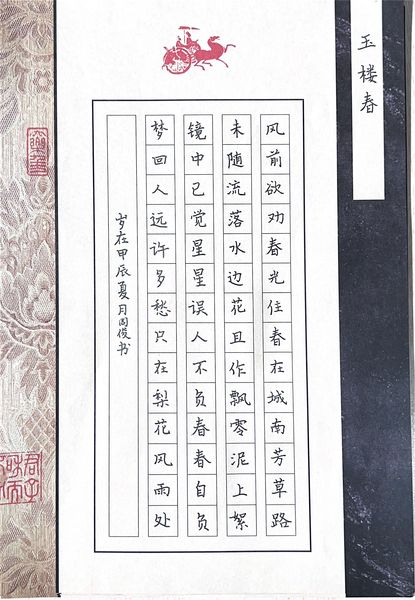 玉楼春
风前欲劝春光住春在城南芳草路
未随流落水边花且作飘零泥上絮
镜中已觉星星误人不负春春自负
梦回人远许多愁只在梨花风雨处
岁在甲辰夏月周俊书
君子